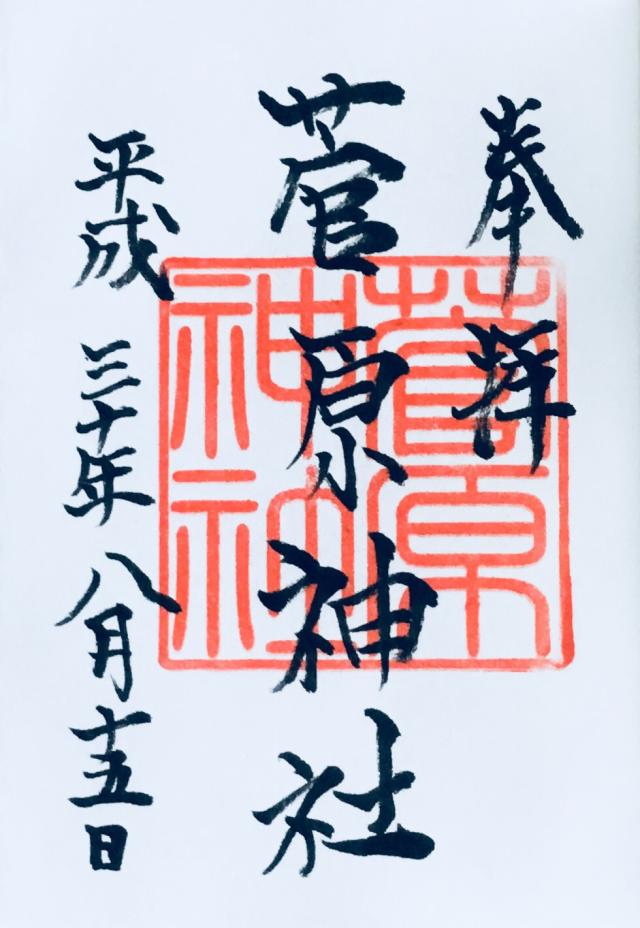 奉拝
菅原神社
平成三十年八月十五日
菅原
神社